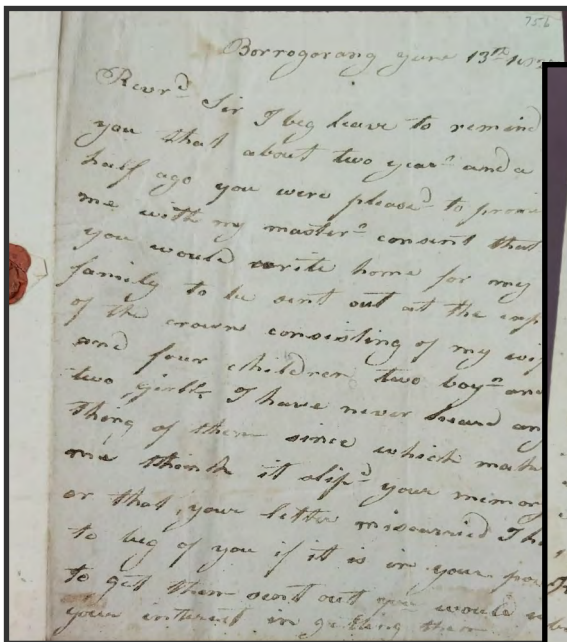 756
Borrogorang June 13th
Revrd Sir I beg leave to remind
you that about two years and a
half ago you were pleasd to
me with my masters consent that
you would write home for my
family to be sent out at the
of the crown consisting of my
and four children two boys
two girls I have never heard
thing of them since which
me think it slipd your
or that your letter miscarried I
to beg of you if it is in your
to get them sent out you would
your interest in getting them